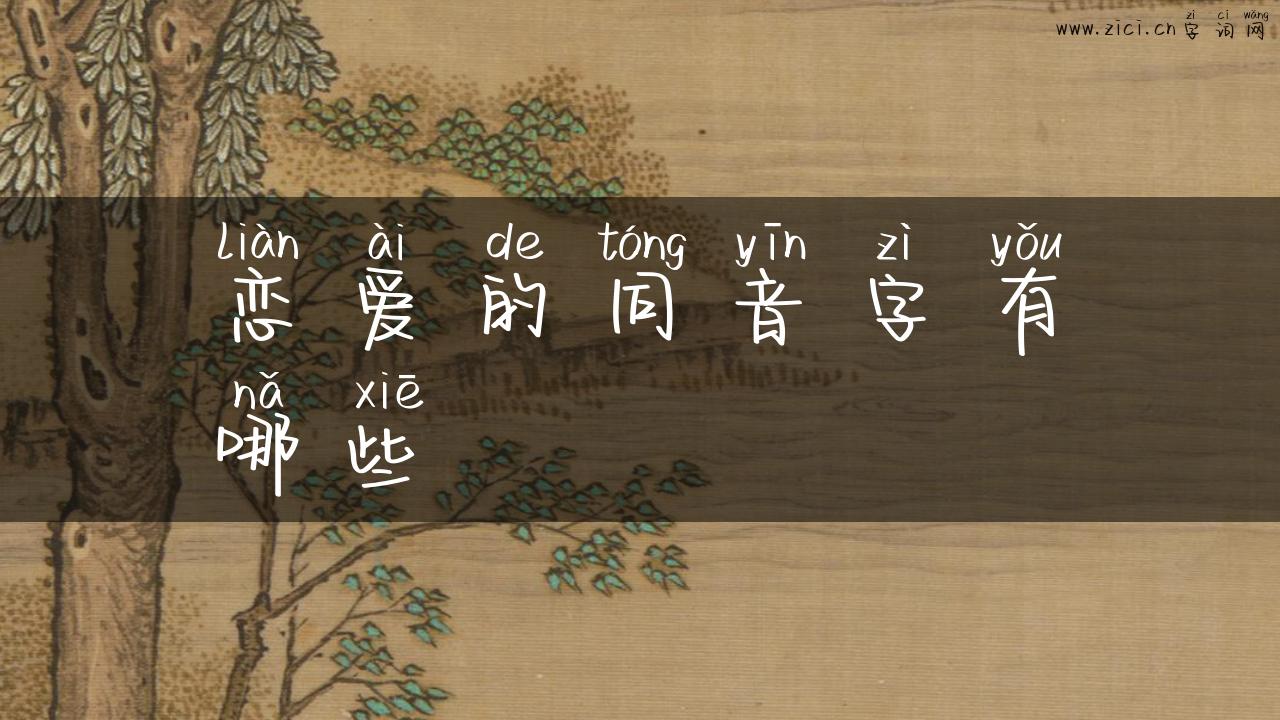 zì cí wǎng
www.zici.cn 字词网
liàn ài de tóng yīn zì yǒu
恋爱的同音字有
nǎ xiē
哪些